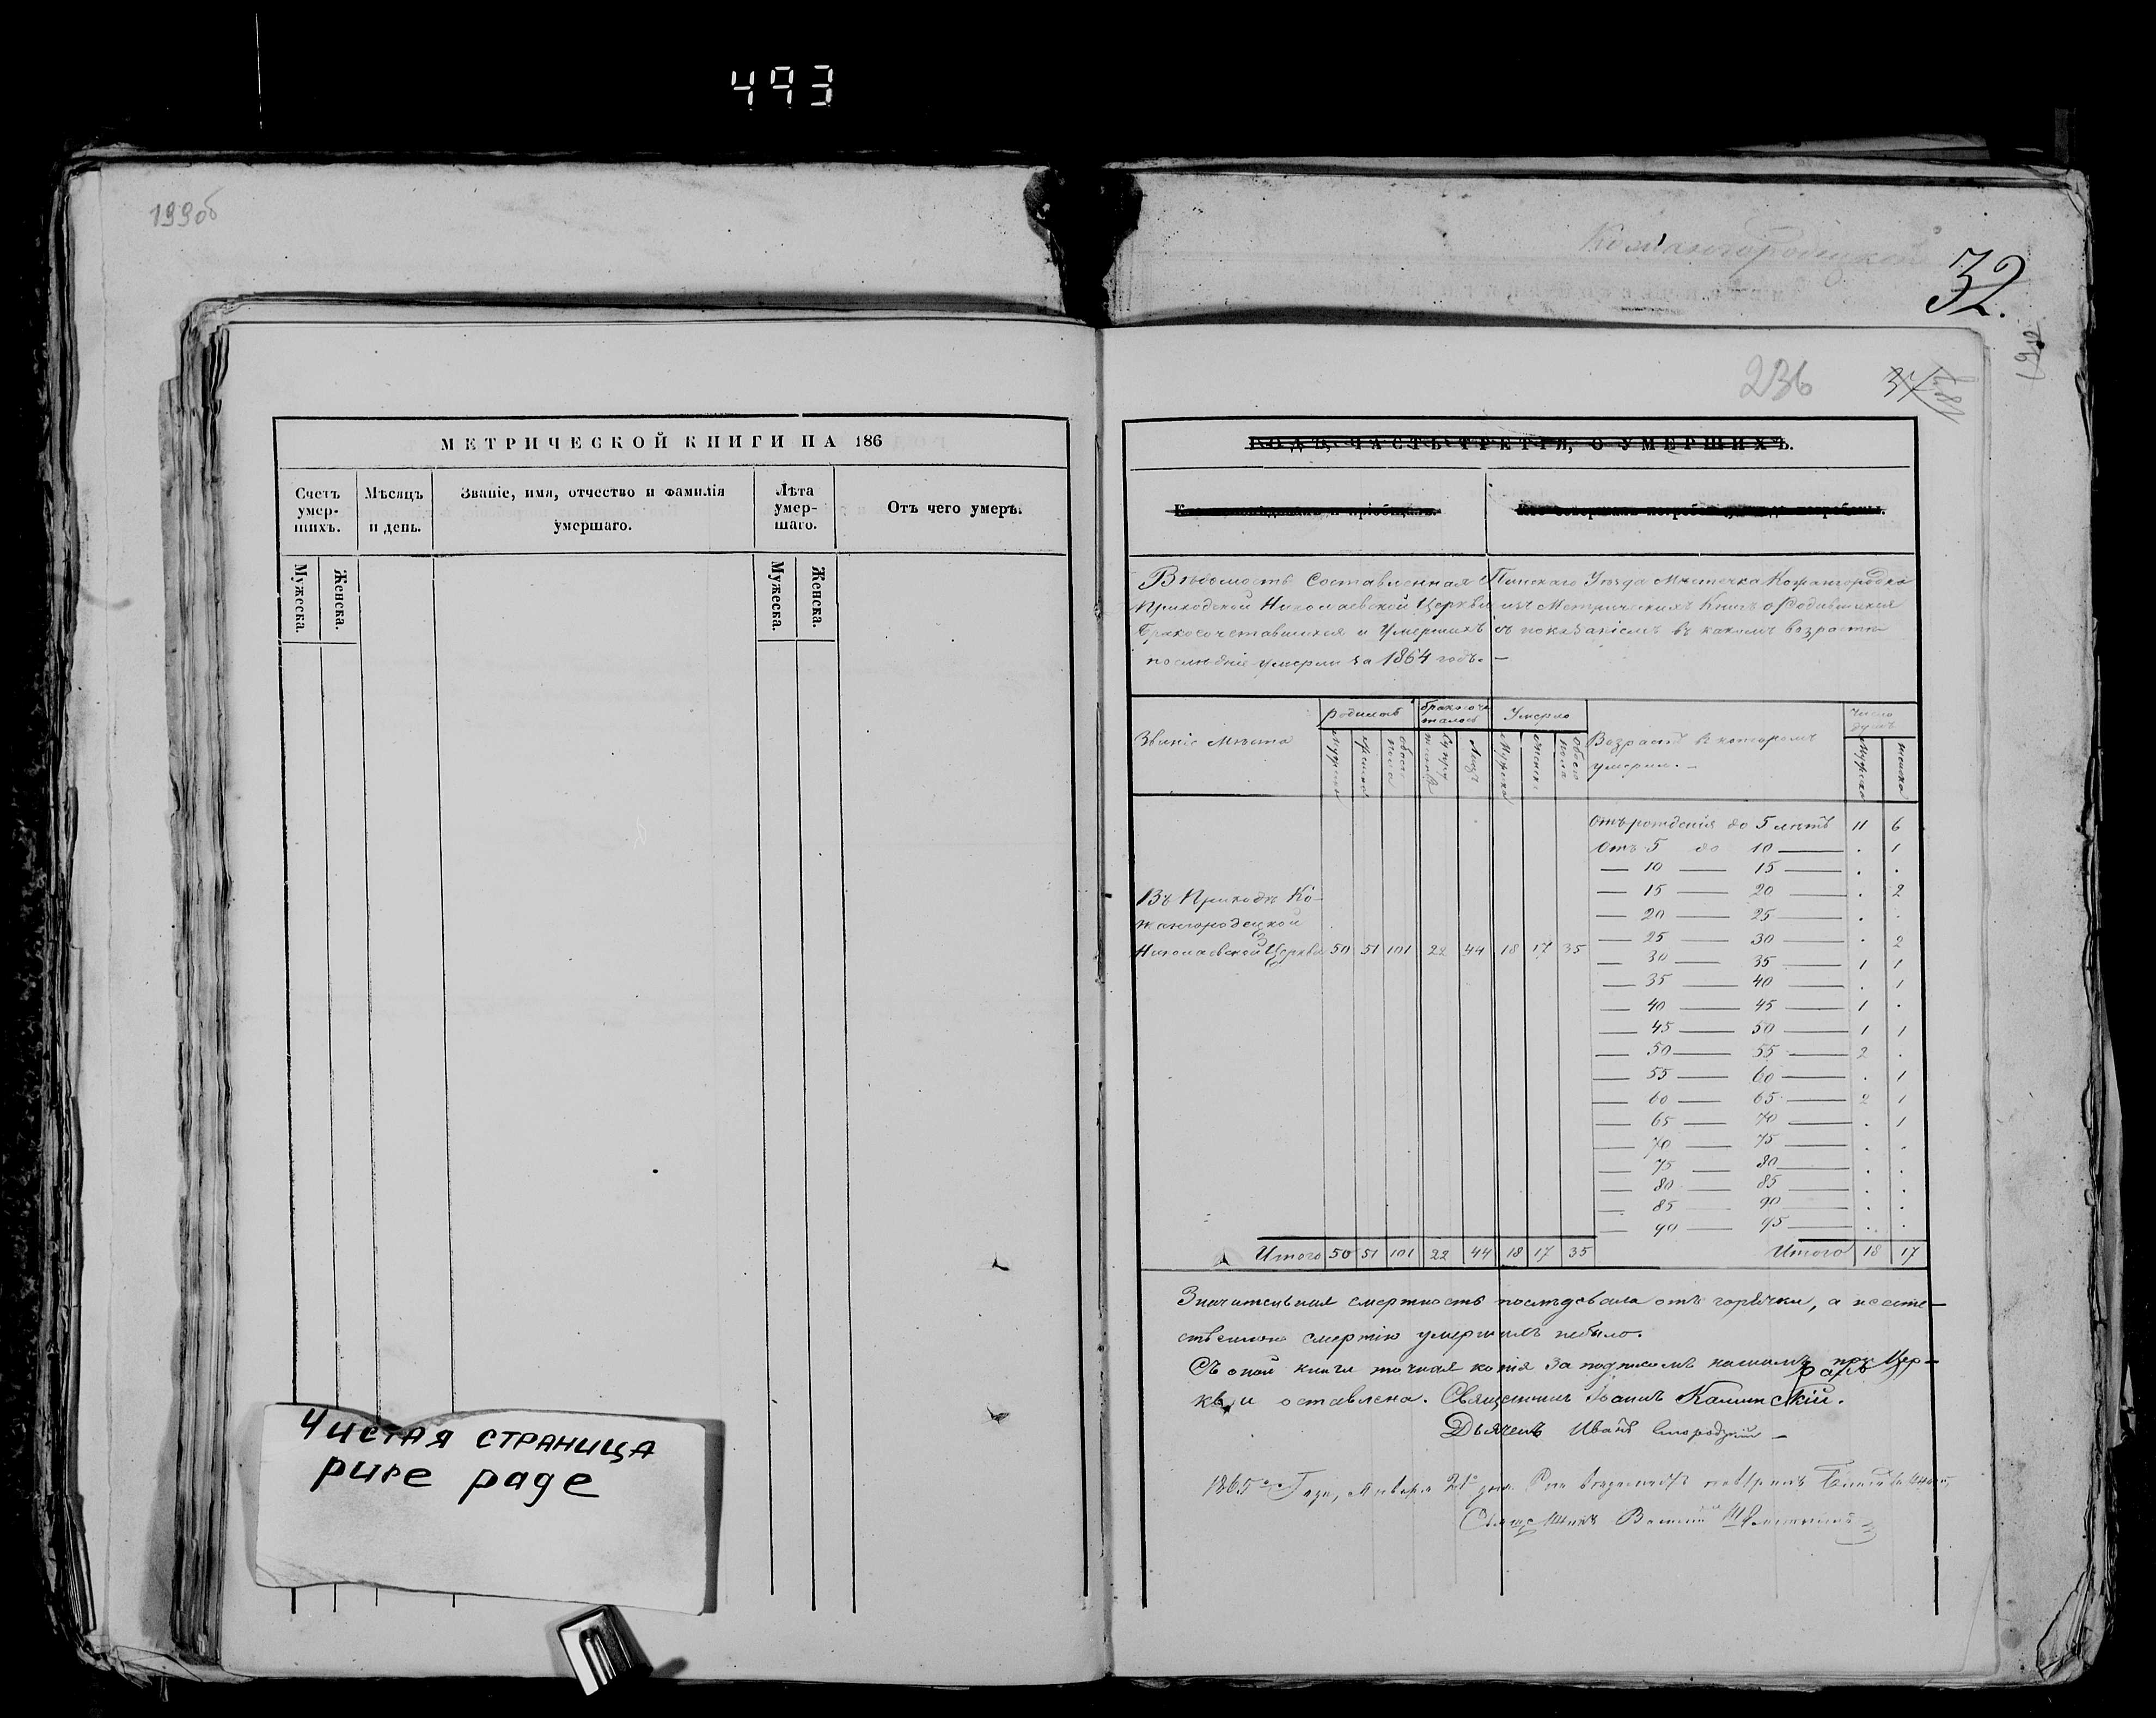 493
199об
Кожангородецкой
32.
236
МЕТРИЧЕСКОЙ КНИГИ НА 186
Счетъ умер-шихъ.
Мѣсяцъ и день.
Званіе, имя, отчество и фамилія умершаго.
Лѣта умер-шаго.
Отъ чего умеръ.
Мужеска.
Женска.
Мужеска.
Женска.
Чистая страница
pure page
ГОДЪ, ЧАСТЬ ТРЕТІЯ, О УМЕРШИХЪ.
Вѣдомость Составленная Пинскаго Уѣзда Мѣстечка Кожангородка
Приходской Николаевской Церкви изъ Метрическихъ Книгъ о Родившихся
Бракосочетавшихся и Умершихъ съ показаніемъ въ какомъ возрастѣ
послѣдніе умерли за 1864 годъ. —
Званіе Мѣста
Родилось
Умерло
Возрастъ в которомъ умерли. —
Число душъ
Мужеска
Женска
обоего пола
Лицъ
Мужеска
Женска
Обоего пола
Мужеска
Женска
Отъ рожденія до 5 лѣтъ 11 6
Отъ 5 до 10 — . 1
— 10 — 15 — . .
— 15 — 20 — . 2
— 20 — 25 — . .
— 25 — 30 — . 2
— 30 — 35 — 1 1
— 35 — 40 — . 1
— 40 — 45 — 1 .
— 45 — 50 — 1 1
— 50 — 55 — 2 .
— 55 — 60 — . 1
— 60 — 65 — 2 1
— 65 — 70 — . 1
— 70 — 75 — . .
— 75 — 80 — . .
— 80 — 85 — . .
— 85 — 90 — . .
— 90 — 95 — . .
Въ Приходѣ Ко-
жангородецкой
Николаевской Церкви 50 51 101 22 44 18 17 35
Итого 50 51 101 22 44 18 17 35
Итого 18 17
Значительная смертность послѣдовала отъ горячки, а неесте-
ственною смертію умершихъ небыло.
Съ оной книги точная копія за подписомъ нашимъ при Цер-
кви оставлена. Священникъ Іоаннъ Калинскій.
Дьячекъ Иванъ
1865 Года, Января 21 дня
Священникъ Василій